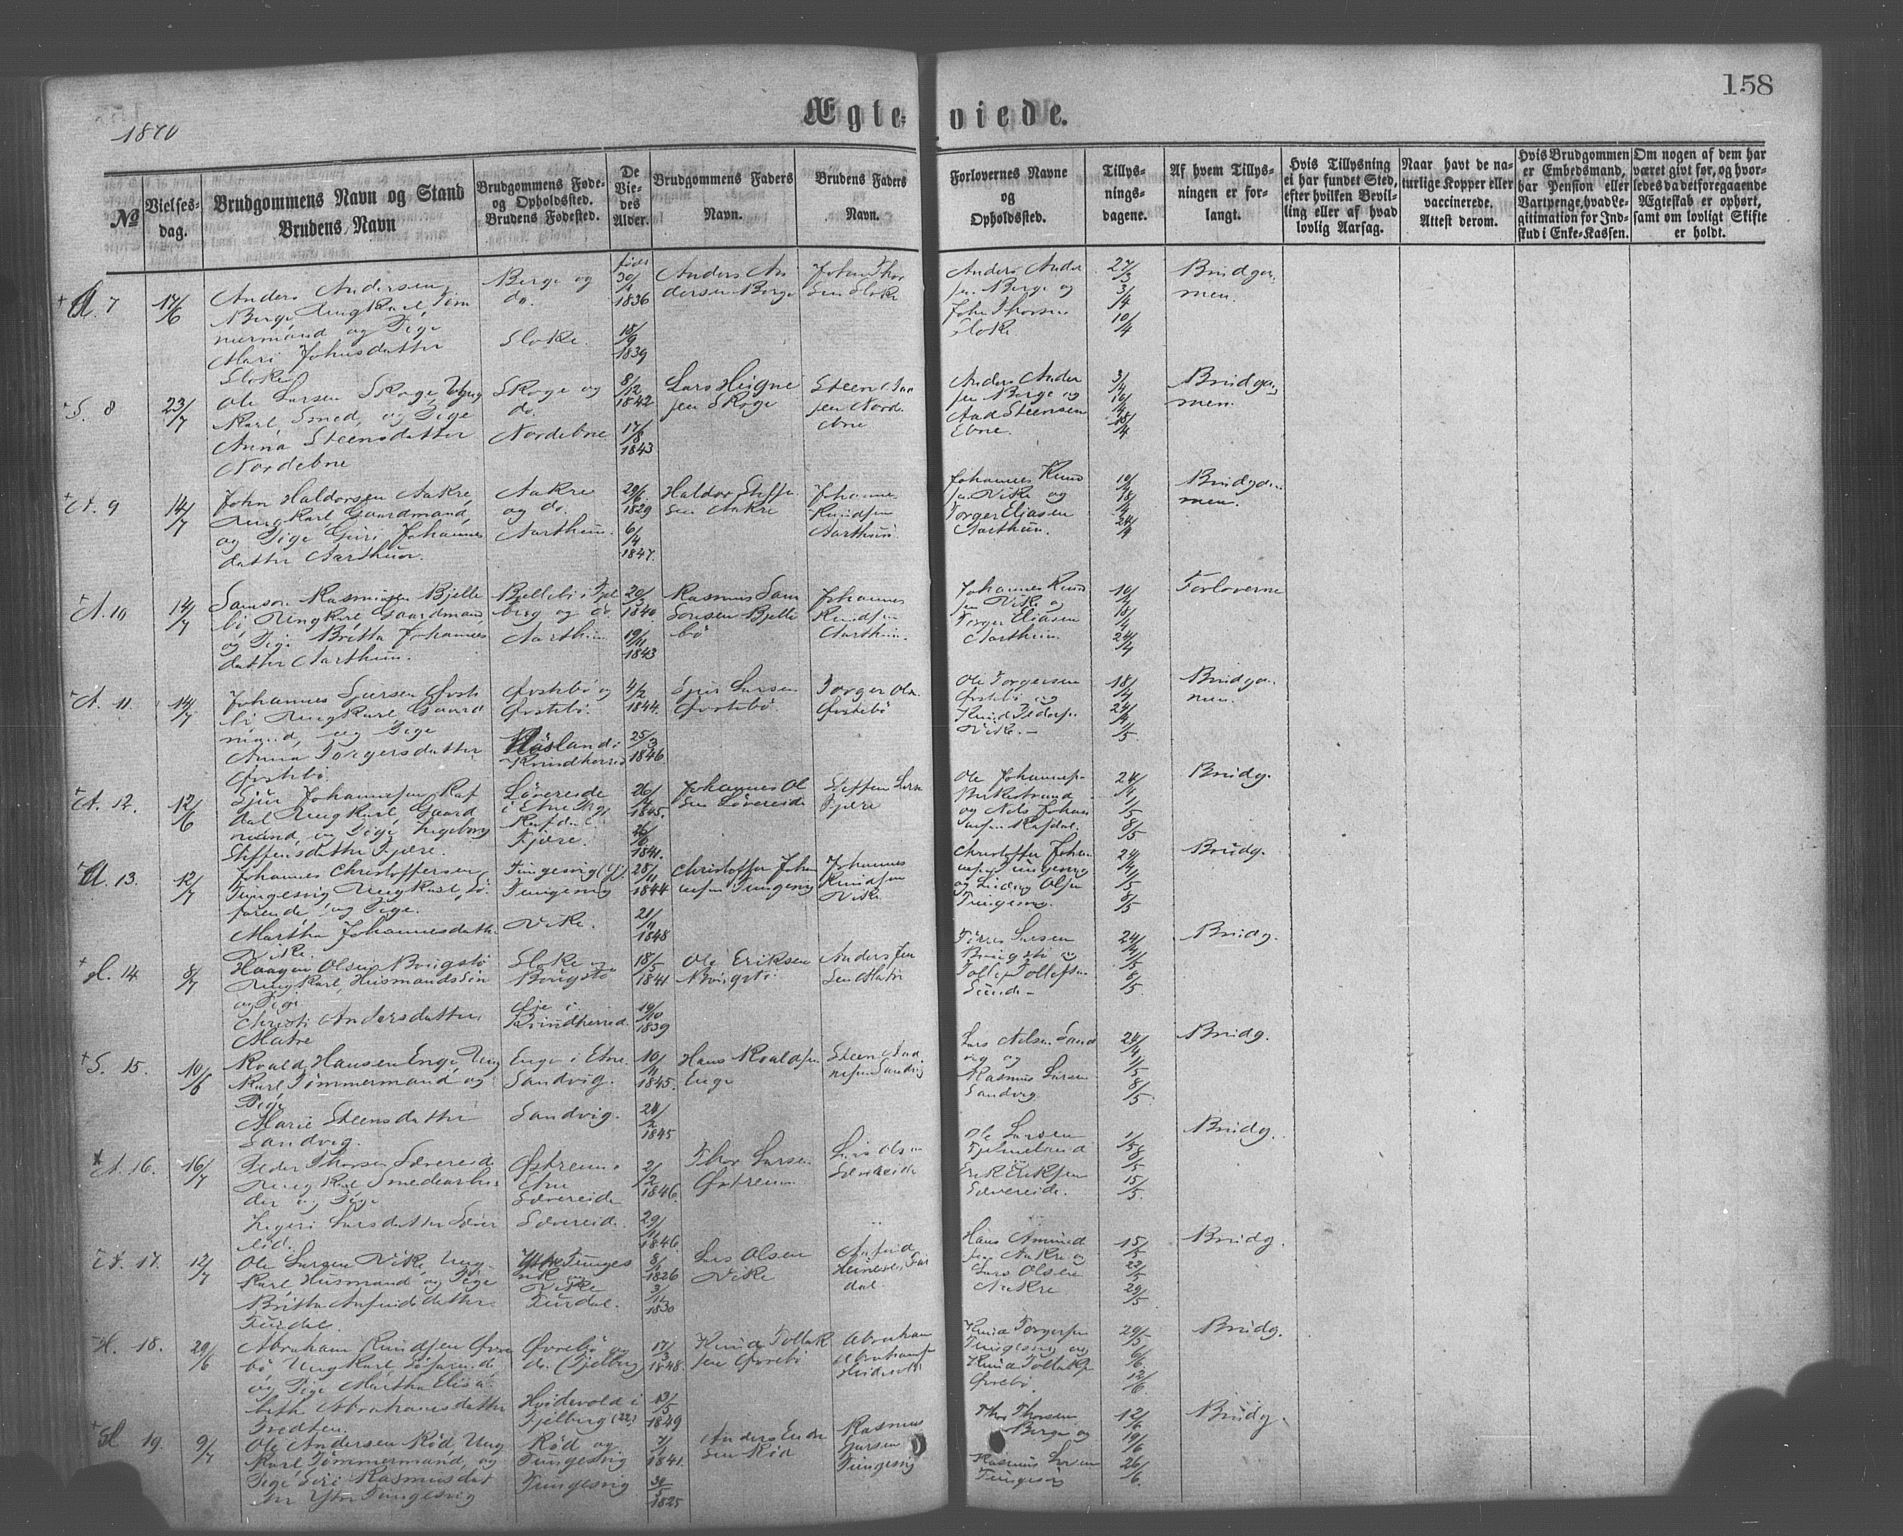 158
Ægte-viede.
1870
No
Vielses-
dag.
Brudgommens Navn og Stand
Brudens Navn
Brudgommens Føde-
og Opholdssted.
Brudens Fødested.
De
Vie-
des
Alder.
Brudgommens Faders
Navn.
Brudens Faders
Navn.
Forlovernes Navne
og
Opholdssted.
Tillys-
nings-
dagene.
Af hvem Tillys-
ningen er for-
langt.
Hvis Tillysning
ei har fundet Sted,
efter hvilken Bevil-
ling eller af hvad
lovlig Aarsag.
Naar havt de na-
turlige Kopper eller
vaccinerede.
Attest derom.
Hvis Brudgommen
er Embedsmand,
har Pension eller
Vartpenge, hvad Le-
gitimation for Ind-
skud i Enke-Kassen.
Om nogen af dem har
været gift før, og hvor-
ledes da det foregaaende
Ægteskab er ophørt,
samt om lovligt Skifte
er holdt.
7 17/6
Anders Andersen
Berge Ungkarl Tøm
mermand og Pige
Mari Johnsdatter
Sloke
Berge og
do.
Sloke.
født
1836
18/9
1839
Anders An
dersen Berge
John Thor
sen Sloke
Anders Ander
sen Berge og
John Thorsen
Sloke
27/3
3/4
10/4
Brudgom
men.
S. 8 23/7
Ole Larsen Skoge, Ung
karl, Smed, og Pige
Anna Steensdatter
Nordebne
Skoge og
do.
Nordebne
8/12
1842
17/8
1843
Lars Heigne
sen Skoge
Steen Aa
sen Norde
ebne
Anders Ander
sen Berge og
Aad Steensen
Ebne.
3/4
10/4
18/4
Brudgom
men.
9 14/7
John Haldorsen Aakre,
Ungkarl, Gaardmand,
og Pige Guri Johannes
datter Aarthun.
Aakre
og do.
Aarthun.
29/6
1829
6/4
1847.
Haldor Steffen
sen Aakre
Johannes
Knudsen
Aarthun
Johannes Knud
sen Vike og
Torger Eliasen
Aarthun.
10/4
18/4
24/4
Brudgom
men.
A. 10 14/7
Samson Rasmusen Bjelle
bø Ungkarl Gaardmand
og Pige Britta Johannes
datter Aarthun.
Bjellebø i Fjel
berg og do
Aarthun
20/3
1840
19/11
1843
Rasmus Sam
sonsen Bjelle
bø
Johannes
Knudsen
Aarthun.
Johannes Knud
sen Vike og
Torger Eliasen
Aarthun.
10/4
18/4
24/4
Forloverne
A. 11 14/7
Johannes Sjursen Øvste
bø Ungkarl Gaard
mand, og Pige
Anna Torgersdatter
Øvstebø.
Øvstebø og
Øvstebø.
Kvindherred
4/2
1844.
25/3
1846.
Sjur Larsen
Øvstebø
Torger Olsen
Øvstebø
Ole Torgersen
Øvstebø og
Vike.
18/4
24/4
1/5
Brudgom
men.
12. 12/6
Sjur Johannesen Raf
dal Ungkarl, Gaard
mand, og Pige Ingeborg
Steffensdatter Fjære.
Løvereide
i Etne og
Rafdal.
Fjære.
26/4
1845.
26/6
1841.
Johannes Ol
sen Løvereide
Steffen Larsen
Fjære
Ole Johannesen
Birkestrand
og Nels Johan
nesen Rafdal.
24/4
1/5
8/5
Brudg.
13. 12/7
Johannes Christoffersen
Tungesvig Ungkarl, Sø
farende, og Pige.
Martha Johannesdatter
Vike.
Tungesvig
Tungesvig
Vike.
25/11
1844
21/11
1848
Christoffer Johan
nesen Tungesvig
Johannes
Knudsen
Vike
Christoffer Johan
nesen Tungesvig
og Ludvig Olsen
Tungesvig.
24/4
1/5
8/5
Brudg.
14. 8/7
Haagen Olsen Brigstø
Ungkarl, Husmandssøn
og Pige
Christi Andersdatter
Matre
Sloke
Brigstø
Øie i
Kvindherred.
18/5
1841
19/10
1839
Ole Eriksen
Brigstø
Anders Jen
sen Matre
Larsen
Brigstø og
Tollef Tollefsen
Sunde
24/4
1/5
8/5.
Brudg.
S. 15. 10/6
Roald Hansen Enge, Ung
karl Tømmermand og
Pige
Marie Steensdatter
Sandvig.
Enge i Etne
Sandvig.
Sandvig.
10/11
1845.
24/2
1845
Hans Roaldsen
Enge
Steen Aad
nesen Sandvig
Lars Nelsen Sand
vig og
Rasmus Larsen
Sandvig
24/4
1/5
8/5.
Brudg.
A. 16. 16/7
Peder Thorsen Sævereide
Ungkarl Smedearbei
der og Pige
Ingeri Larsdatter Sæver
eid.
Østreim i
Etne
Sævereide
Sævereid.
2/2
1846.
29/11
1846.
Thor Larsen
Østreim
Lars Olsen
Sævereide
Ole Larsen
Fjelmeland
Erik Eriksen
Sævereide.
1/5
8/5
15/5
Brudg.
17. 12/7
Ole Larsen Vike, Ung-
karl Husmand og Pige
Britta Anfindsdatter
Furdal.
Tunges
vik og
Vike
Furdal.
8/1
1826
3/11
1830
Lars Olsen
Vike
Anfind
Heinesen Fur
dal
Hans Amund
sen Aakre og
Lars Olsen
Aakre
15/5
22/5
29/5
Brudg.
H. 18. 29/6
Abraham Knudsen Øvre
bø Ungkarl Søfarende
og Pige Martha Elisa
beth Abrahamsdatter
Tredten.
Øvrebø og
do. (Fjelberg
Hvidevold i
Fjelberg (22)
17/3
1848.
13/5
1849
Knud Tollak
sen Øvrebø
Abraham
Abrahamsen
Knud Torgersen
Tungesvig og
Knud Tollaksen
Øvrebø.
29/5
6/6
12/6
Brudg.
19. 9/7
Ole Andersen Rød, Ung
karl Tømmermand, og
Pige Siri Rasmusdat
ter Ytre Tungesvig
Rød og
Tungesvig
Tungesvig
7/1
1841.
30/5
1825
Anders End
sen Rød
Rasmus
Larsen
Tungesvig
Thor Thorsen
Berge og
Rasmus Larsen
Tungesvig
12/6
19/6
26/6.
Brudg.